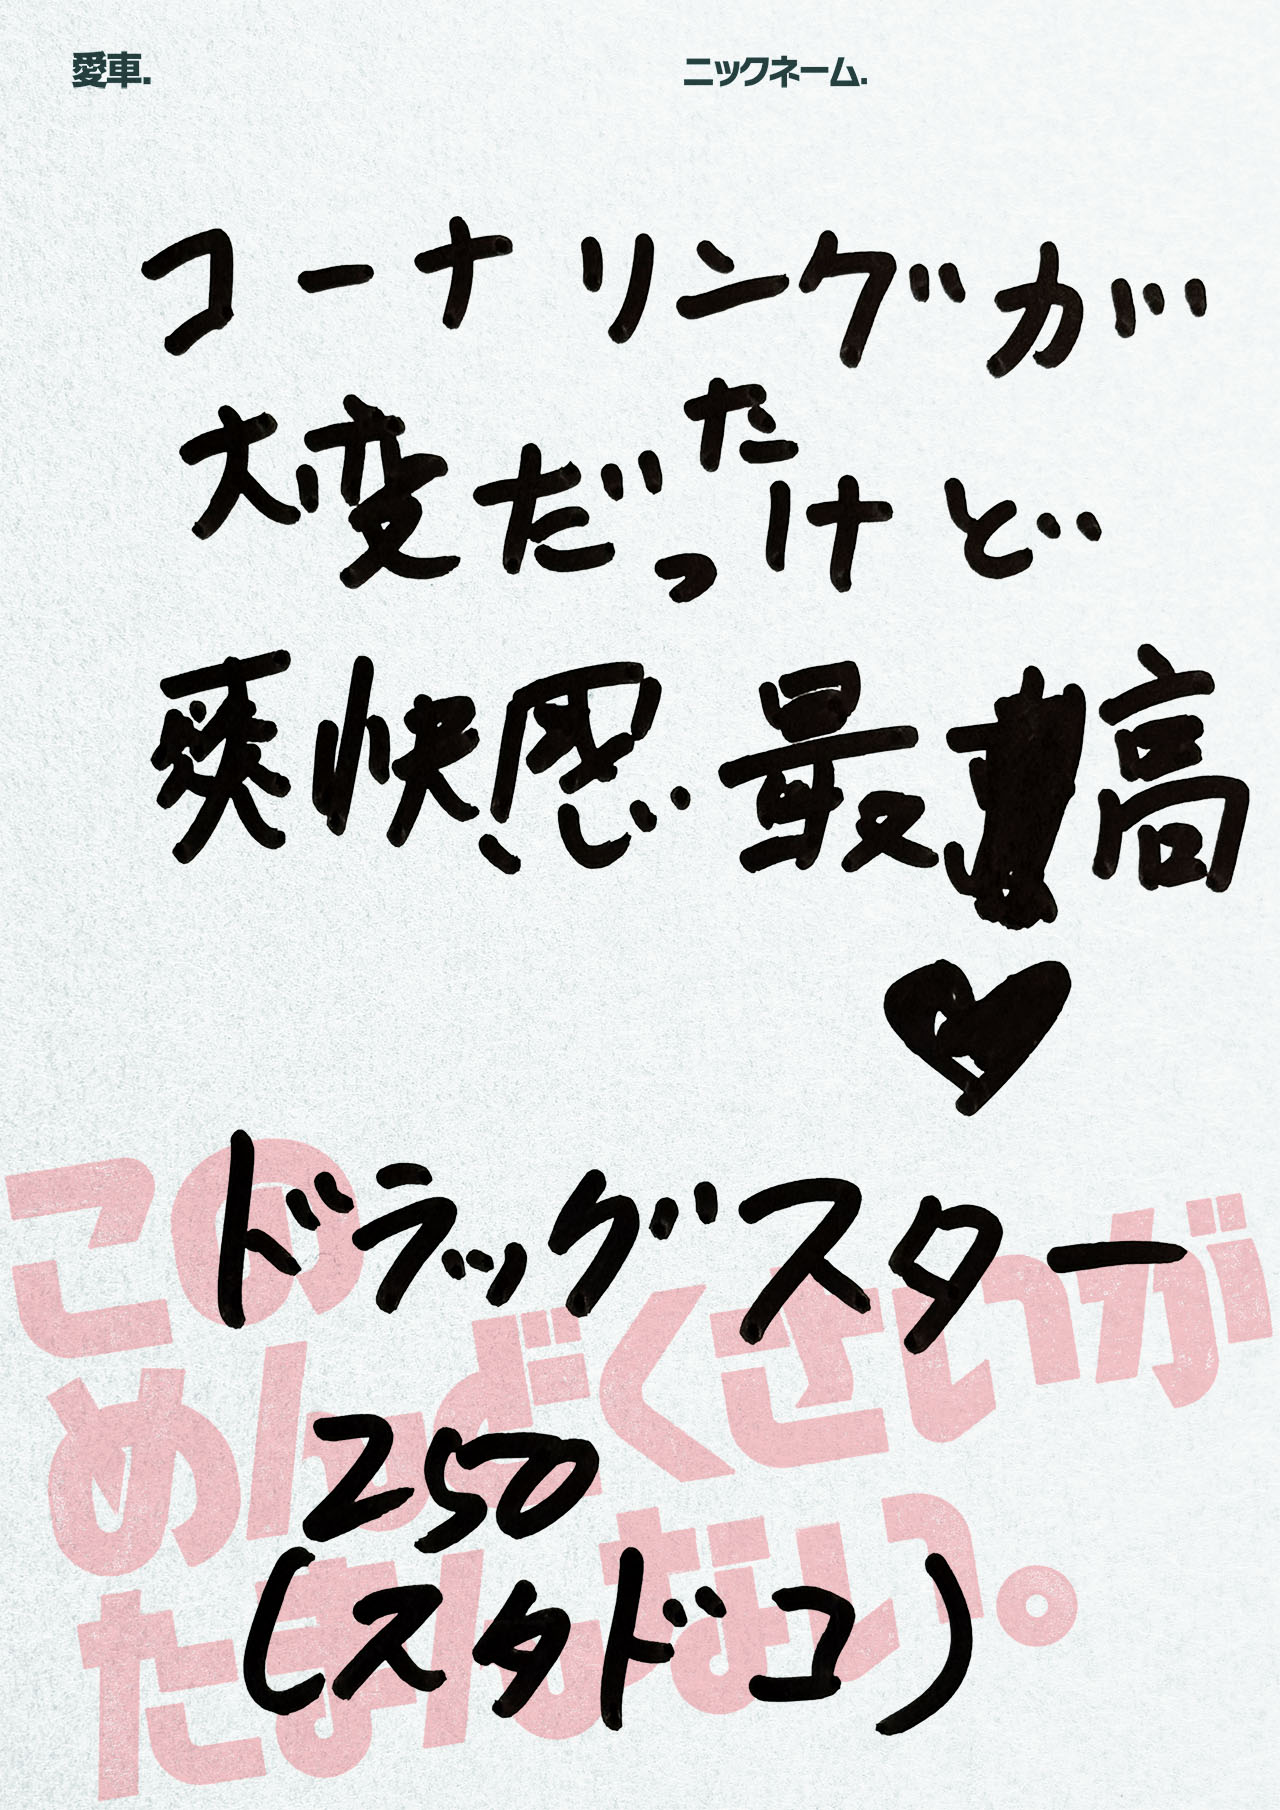 愛車. ニックネーム.
コーナリングが
大変だったけど
爽快感最高
♥
ドラッグスター
250
(スタドコ)
このめんどくさいが
たまんない。